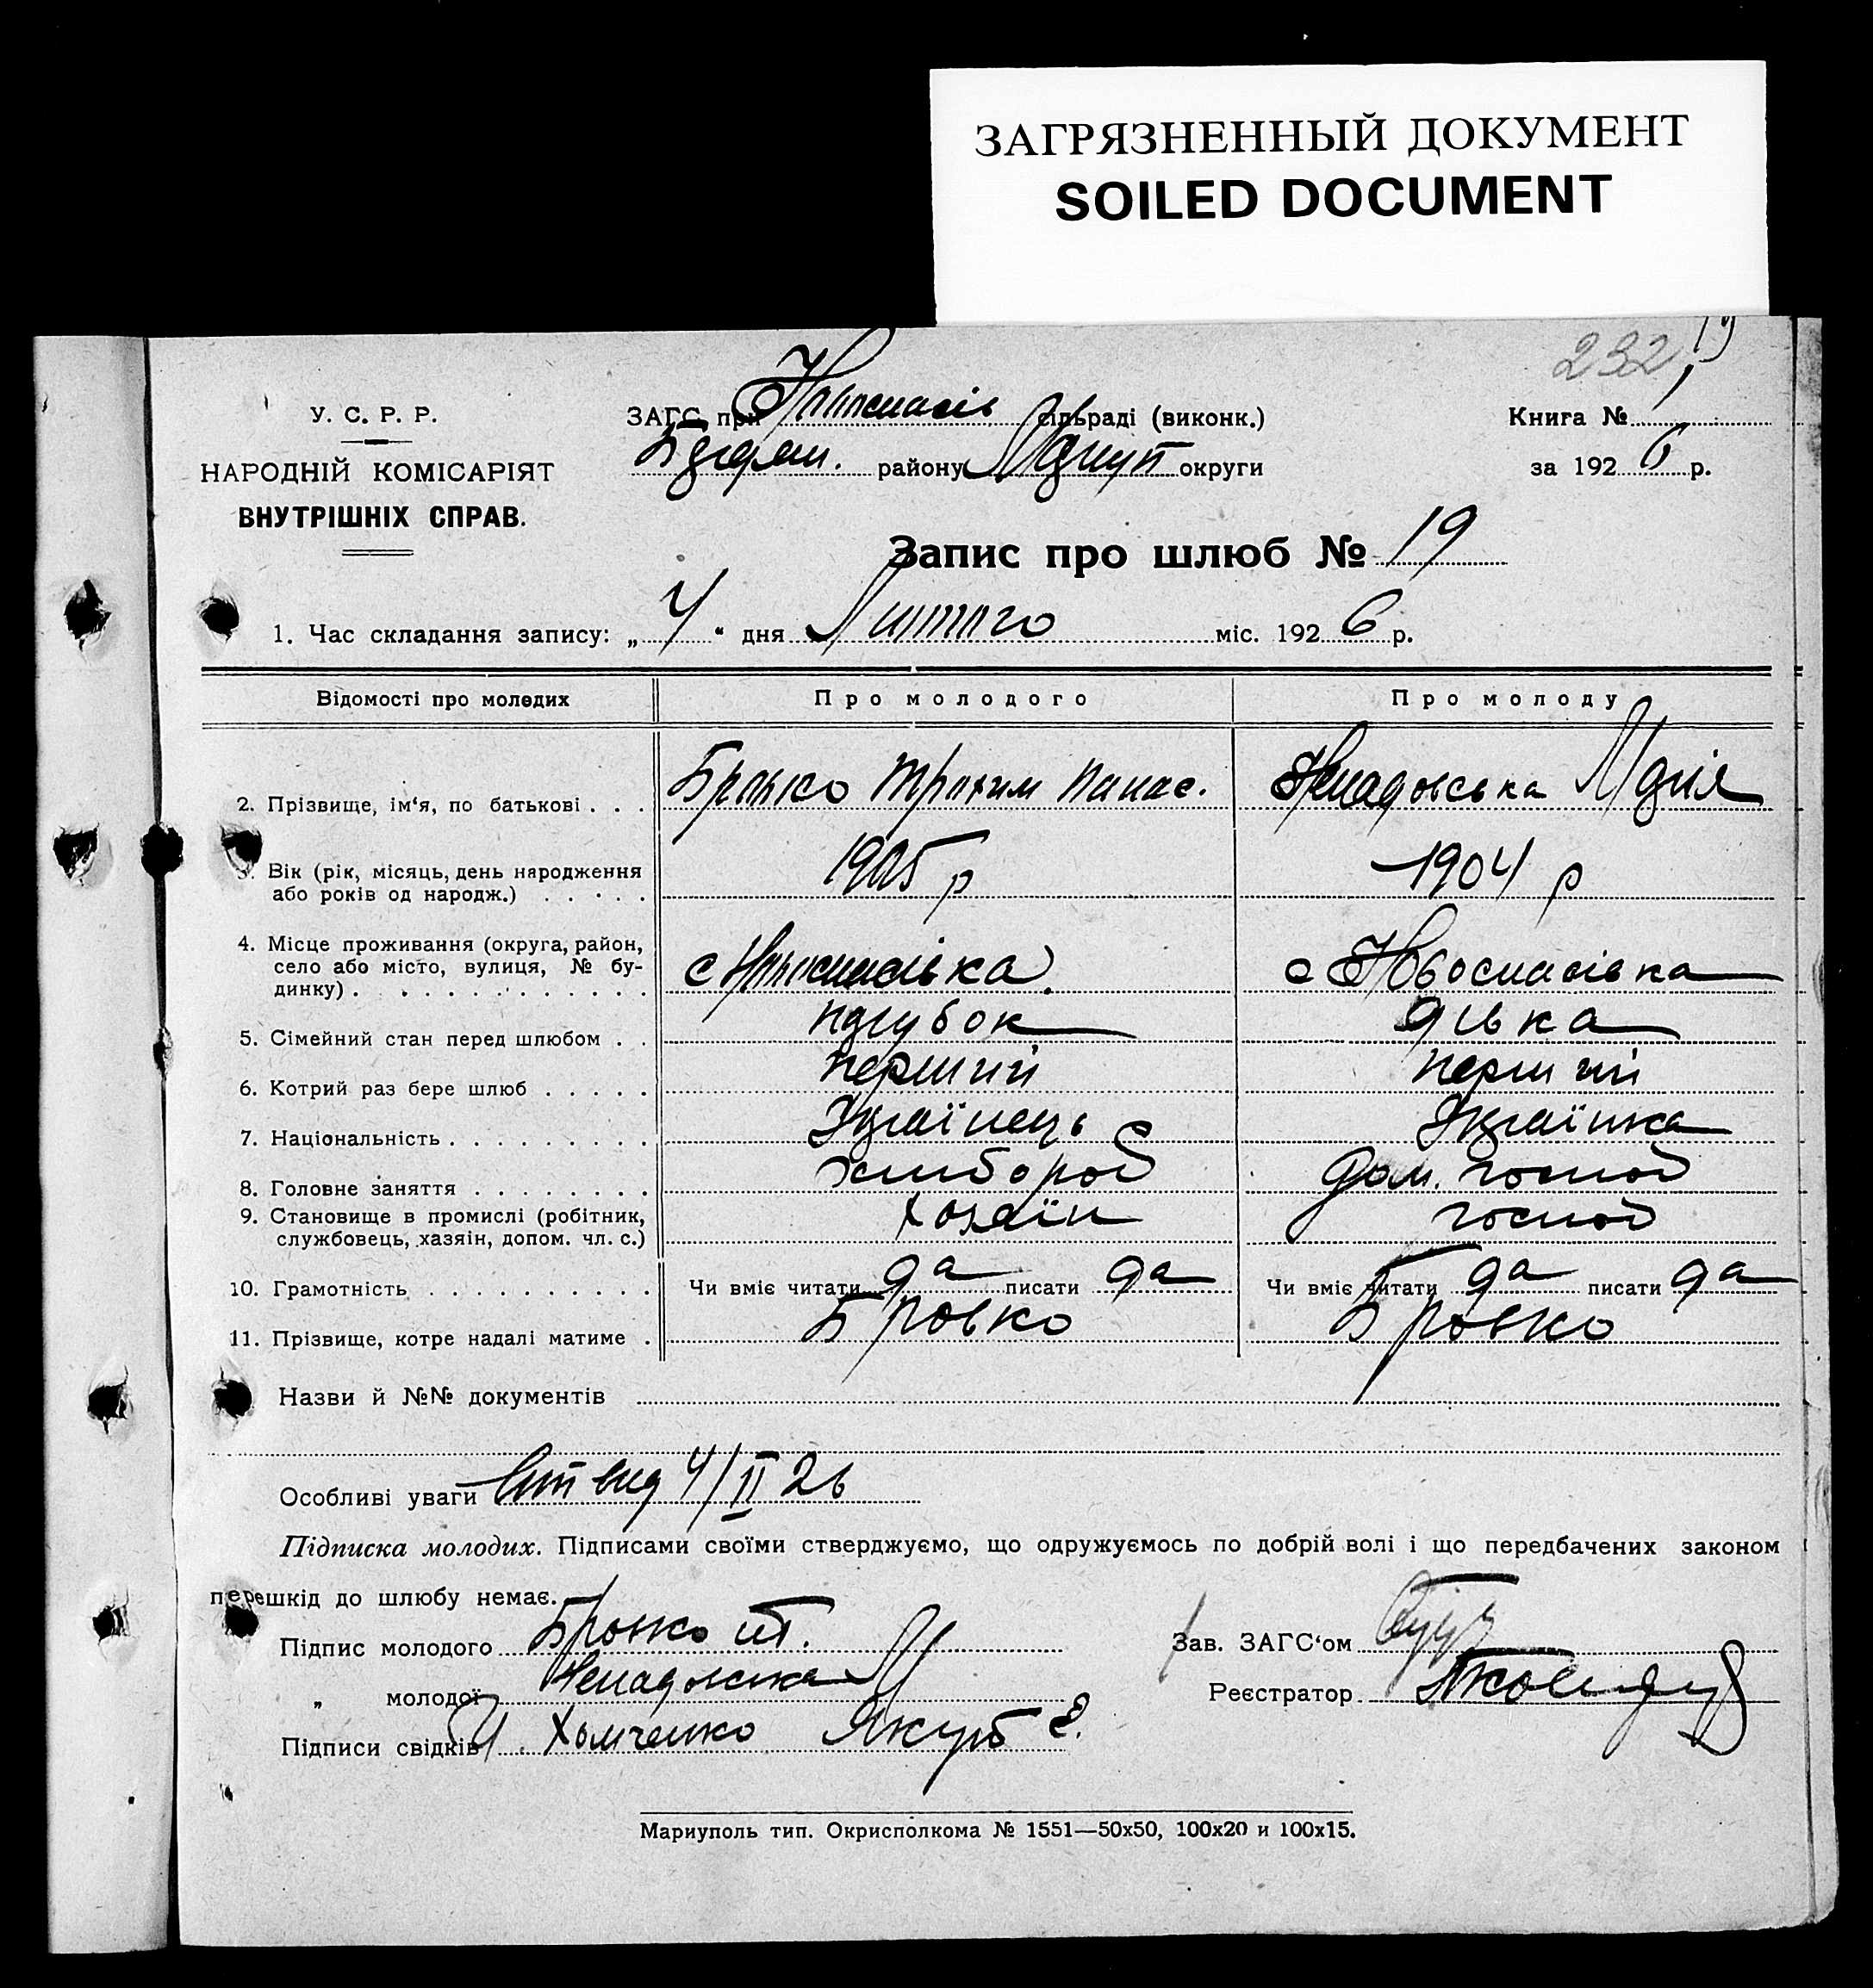 ЗАГРЯЗНЕННЫЙ ДОКУМЕНТ
SOILED DOCUMENT
232
19
У. С. Р. Р.
НАРОДНІЙ КОМІСАРІЯТ
ВНУТРІШНІХ СПРАВ.
ЗАГС при Новоспасів сільраді (виконк.)
району Маріуп округи
Книга № 1
за 1926 р.
Запис про шлюб № 19
1. Час складання запису: „4“ дня Лютого міс. 1926 р.
Відомості про моледих Про молодого Про молоду
2. Прізвище, ім‘я, по батькові . . . Бровко Трохим Панас. Ненадовська Марія
3. Вік (рік, місяць, день народження
або років од народж.) . . . . . 1905 р 1904 р
4. Місце проживання (округа, район,
село або місто, вулиця, № бу-
динку) . . . . . . . . . . . . с Новоспасівка с Новоспасівка
5. Сімейний стан перед шлюбом . . парубок дівка
6. Котрий раз бере шлюб . . . . . перший перший
7. Національність . . . . . . . . . Українець Українка
8. Головне заняття . . . . . . . . хлібороб дом. господ
9. Становище в промислі (робітник,
службовець, хазяін, допом. чл. с.) хозяїн господ
10. Грамотність . . . . . . . . . . . Чи вміє читати да писати да Чи вміє читати да писати да
11. Прізвище, котре надалі матиме . Бровко Бровко
Назви й №№ документів
Особливі уваги 4/II 26
Підписка молодих. Підписами своїми стверджуємо, що одружуємось по добрій волі і що передбачених законом
перешкід до шлюбу немає.
Підпис молодого Бровко Т.
„ молодої Ненадовська М
Підписи свідків Хомченко Якуб Е.
Зав. ЗАГС‘ом
Реєстратор
Мариуполь тип. Окрисполкома № 1551—50х50, 100х20 и 100х15.